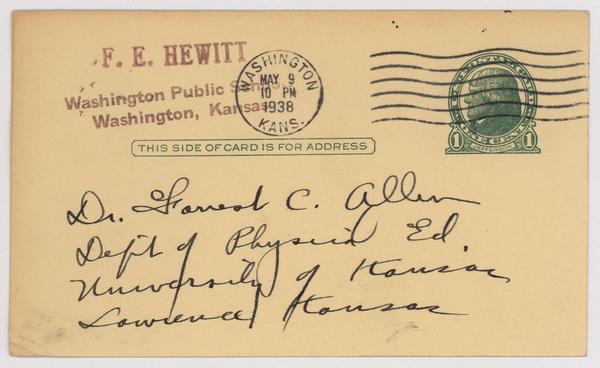 F. E. HEWITT
Washington Public School
Washington, Kansas
WASHINGTON
MAY 9
10 PM
1938
KANS.
1 JEFFERSON 1
THIS SIDE OF CARD IS FOR ADDRESS
Dr. Forrest C. Allen
Dept of Physical Ed.
University of Kansas
Lawrence, Kansas